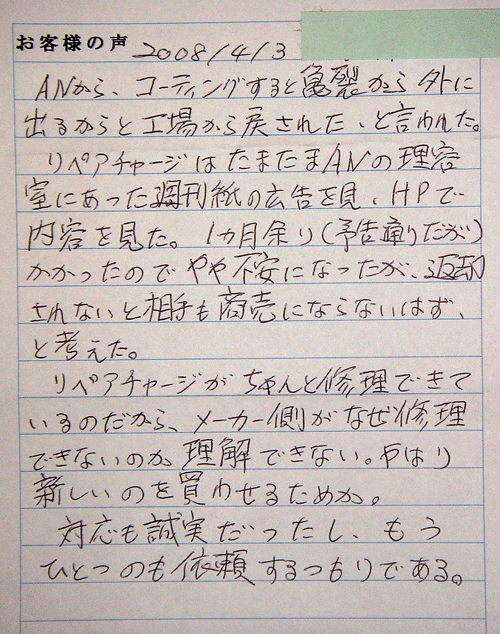 お客様の声 2008/4/3
ANから、コーティングすると亀裂から外に
出るからと工場から戻された、と言われた。
リペアチャージはたまたまANの理容
室にあった週刊紙の広告を見、HPで
内容を見た。1カ月余り(予告通りだが)
かかったのでやや不安になったが、返却
されないと相手も商売にならないはず、
と考えた。
リペアチャージがちゃんと修理できて
いるのだから、メーカー側がなぜ修理
できないのか理解できない。やはり
新しいのを買わせるためか。
対応も誠実だったし、もう
ひとつのも依頼するつもりである。